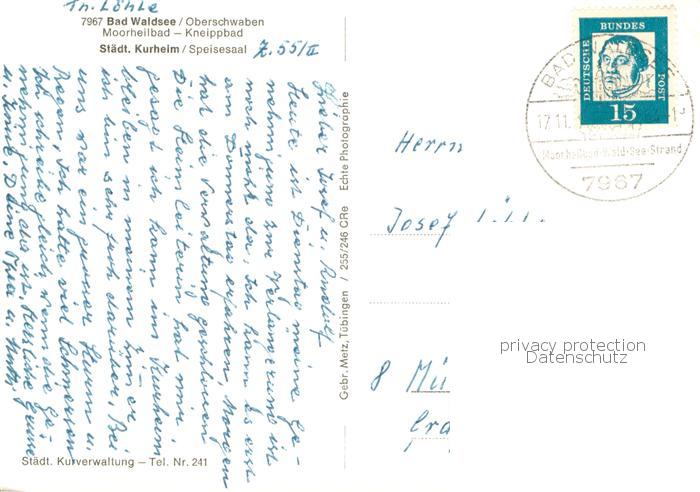 Th. Löhle
7967 Bad Waldsee / Oberschwaben
Moorheilbad — Kneippbad
Städt. Kurheim / Speisesaal
Z. 55/II
Lieber Josef u. Rudolf
Heute ist Dienstag meine Ge-
nehmigung zur Verlängerung ist
noch nicht da. Ich kann es erst
am Donnerstag erfahren, Morgen
hat die Verwaltung geschlossen
Die Heimleiterin hat mir
gesagt ich kann im Kurheim
bleiben in meinem Zimmer
ich bin sehr froh darüber. Bei
uns war ein grosser Sturm u.
Regen, Ich hatte viel Schmerzen
Ich schreibe gleich wenn die Ge-
nehmigung da ist. Herzliche Grüsse
u. Deine u. Mutti
Städt. Kurverwaltung — Tel. Nr. 241
Gebr. Metz, Tübingen / 255/246 CRe Echte Photographie
DEUTSCHE
BUNDES
POST
15
BAD
17.11.
7967
Herrn
Josef
privacy protection
Datenschutz
8 Mü